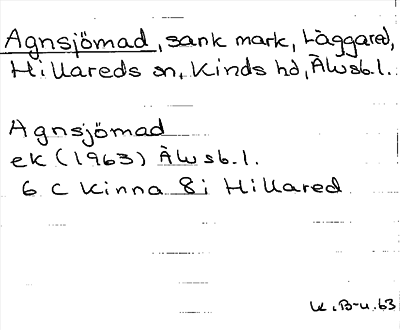 Agnsjömad, sank mark, Läggared,
Hillareds sn, Kinds hd, Älvsb.l.
Agnsjömad
ek (1963) Älvsb.l.
6 C Kinna 8i Hillared
K.B-u.63